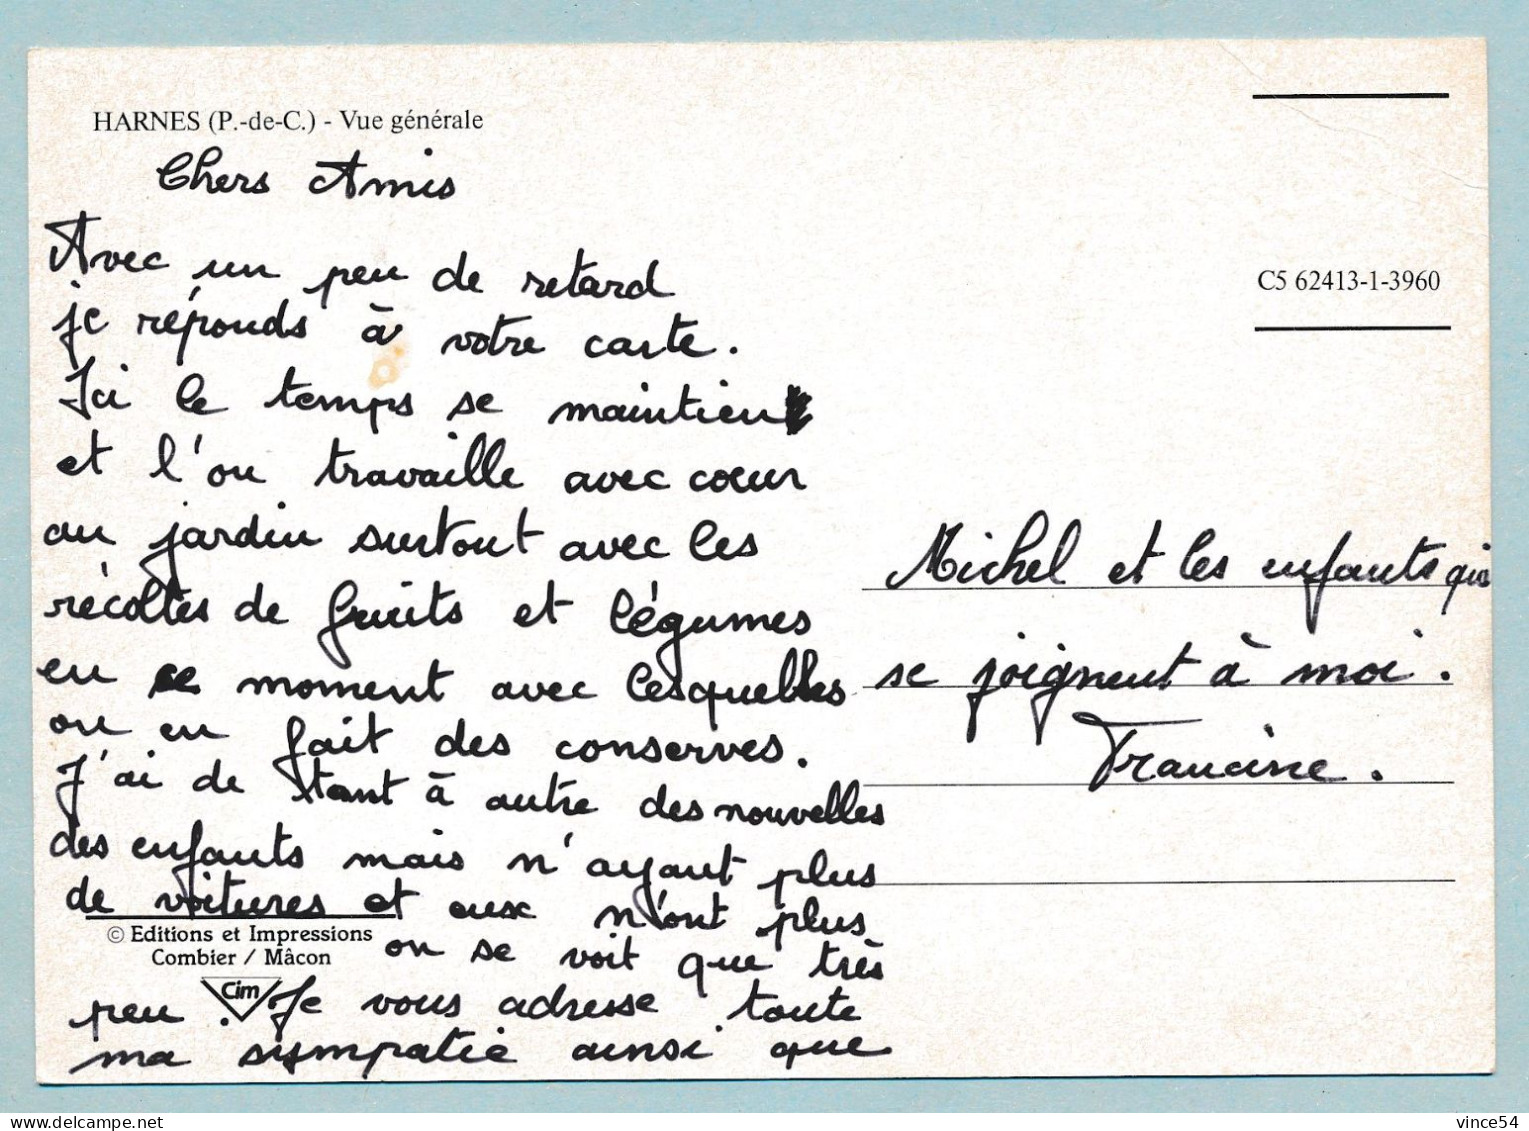 HARNES (P.-de-C.) - Vue générale
Chers Amis
Avec un peu de retard
je réponds à votre carte.
Ici le temps se maintient
et l'on travaille avec cœur
au jardin surtout avec les
récoltes de fruits et légumes
en ce moment avec lesquelles
on en fait des conserves.
J'ai de tant à autre des nouvelles
des enfants mais n'ayant plus
de voitures et eux n'ont plus
on se voit que très
peu. Je vous adresse toute
ma sympatie ainsi que
© Editions et Impressions
Combier / Mâcon
Cim
C5 62413-1-3960
Michel et les enfants qui
se joignent à moi.
Francine.
delcampe.net
vince54